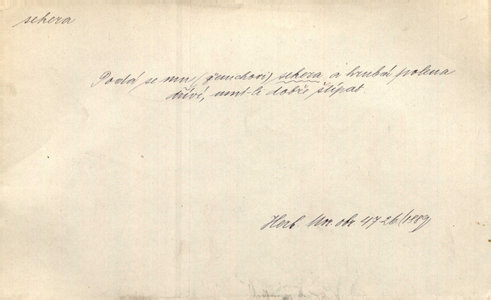 sekera
Podá se mu (ženichovi) sekera a hrubá polena
dříví, umí-li dobře štípat
Herb. Mor. obr. 4726 (1889)